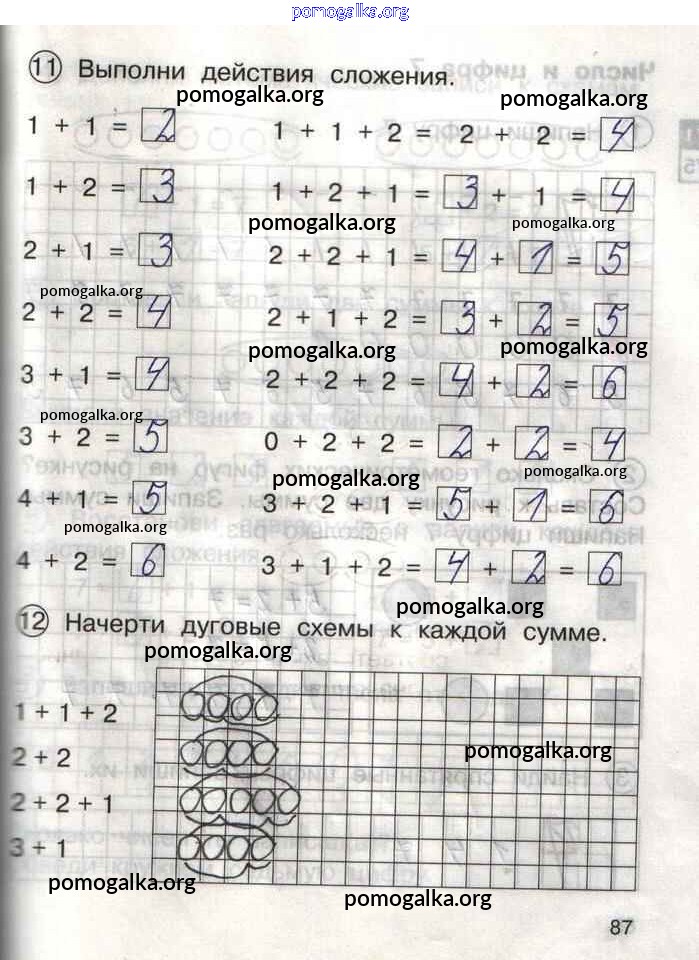 pomogalka.org
11 Выполни действия сложения.
pomogalka.org pomogalka.org
1 + 1 = 2 1 + 1 + 2 = 2 + 2 = 4
1 + 2 = 3 1 + 2 + 1 = 3 + 1 = 4
pomogalka.org pomogalka.org
2 + 1 = 3 2 + 2 + 1 = 4 + 1 = 5
pomogalka.org
2 + 2 = 4 2 + 1 + 2 = 3 + 2 = 5
pomogalka.org pomogalka.org
3 + 1 = 4 2 + 2 + 2 = 4 + 2 = 6
pomogalka.org
3 + 2 = 5 0 + 2 + 2 = 2 + 2 = 4
pomogalka.org pomogalka.org
4 + 1 = 5 3 + 2 + 1 = 5 + 1 = 6
pomogalka.org
4 + 2 = 6 3 + 1 + 2 = 4 + 2 = 6
pomogalka.org
12 Начерти дуговые схемы к каждой сумме.
pomogalka.org
1 + 1 + 2
2 + 2 pomogalka.org
2 + 2 + 1
3 + 1
pomogalka.org
pomogalka.org
87